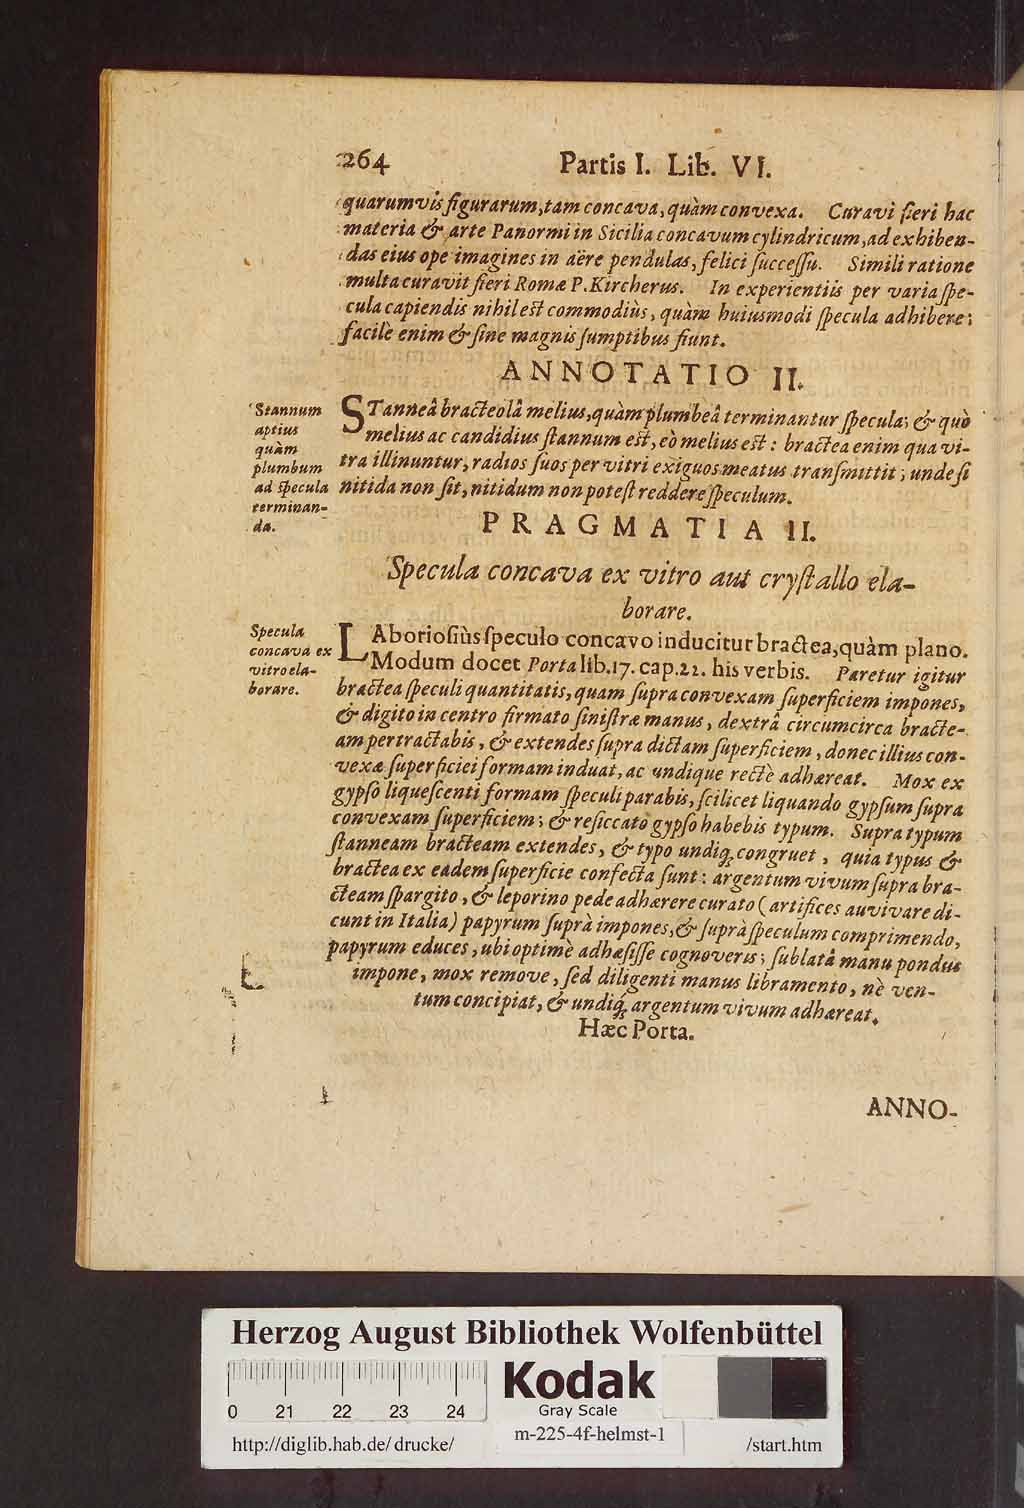 264 Partis I. Lib. VI.
quarumvis figurarum, tam concava, quàm convexa. Curavi fieri hac
materia & arte Panormi in Sicilia concavum cylindricum, ad exhiben-
das eius ope imagines in aëre pendulas, felici ſucceſſu. Simili ratione
multa curavit fieri Romæ P. Kircherus. In experientiis per varia ſpe-
cula capiendis nihil est commodiùs, quàm huiusmodi ſpecula adhibere;
facilè enim & ſine magnis ſumptibus fiunt.
ANNOTATIO II.
Stannum
aptius
quàm
plumbum
ad ſpecula
terminan-
da.
STanneâ bracteolâ melius, quàm plumbeâ terminantur ſpecula; & quò
melius ac candidius ſtannum est, eò melius est: bractea enim qua vi-
tra illinuntur, radios ſuos per vitri exiguos meatus tranſmittit; unde ſi
nitida non ſit, nitidum non poteſt reddere ſpeculum.
PRAGMATIA II.
Specula concava ex vitro aut cryſtallo ela-
borare.
Specula
concava ex
vitro ela-
borare.
LAborioſiùs ſpeculo concavo inducitur bractea, quàm plano.
Modum docet Porta lib. 17. cap. 22. his verbis. Paretur igitur
bractea ſpeculi quantitatis, quam ſupra convexam ſuperficiem impones,
& digito in centro firmato ſiniſtræ manus, dextrâ circumcirca bracte-
am pertractabis, & extendes ſupra dictam ſuperficiem, donec illius con-
vexæ ſuperficiei formam induat, ac undique rectè adhæreat. Mox ex
gypſo liqueſcenti formam ſpeculi parabis, ſcilicet liquando gypſum ſupra
convexam ſuperficiem; & reſiccato gypſo habebis typum. Supra typum
ſtanneam bracteam extendes, & typo undiq; congruet, quia typus &
bractea ex eadem ſuperficie confecta ſunt: argentum vivum ſupra bra-
cteam ſpargito, & leporino pede adhærere curato (artifices auvivare di-
cunt in Italia) papyrum ſuprà impones, & ſuprà ſpeculum comprimendo,
papyrum educes, ubi optimè adhæſiſſe cognoveris; ſublatâ manu pondus
impone, mox remove, ſed diligenti manus libramento, nè ven-
tum concipiat, & undiq; argentum vivum adhæreat.
Hæc Porta.
ANNO-
Herzog August Bibliothek Wolfenbüttel
0 21 22 23 24
Kodak
Gray Scale
http://diglib.hab.de/drucke/ m-225-4f-helmst-1 /start.htm